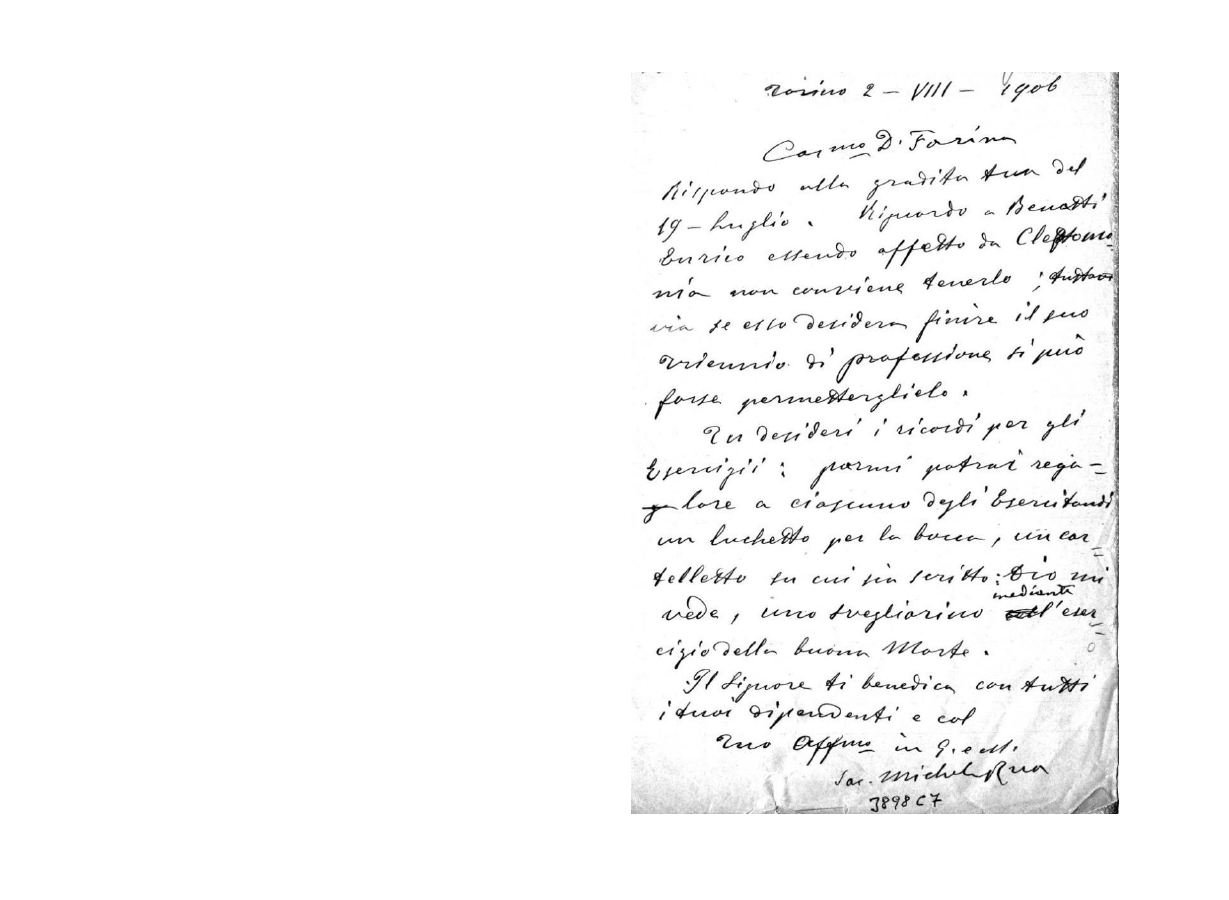 Torino 2 - VIII - 1906
Carmo D. Farina
Rispondo alla gradita tua del
19 - Luglio. Riguardo a Benatti
Enrico essendo affetto da Cleptoma-
nia non conviene tenerlo; tutta
via se esso desidera finire il suo
triennio di professione si può
forse permetterglielo.
Tu desideri i ricordi per gli
Esercizii: parmi potrai rega-
lare a ciascuno degli Esercitandi
un luchetto per la bocca, un car-
telletto su cui sia scritto: Dio mi
mediante
vede, uno svegliarino l'eser-
cizio della buona Morte.
Il Signore ti benedica con tutti
i tuoi dipendenti e col
Tuo Affmo in G. e M.
Sac. Michele Rua
3898C7